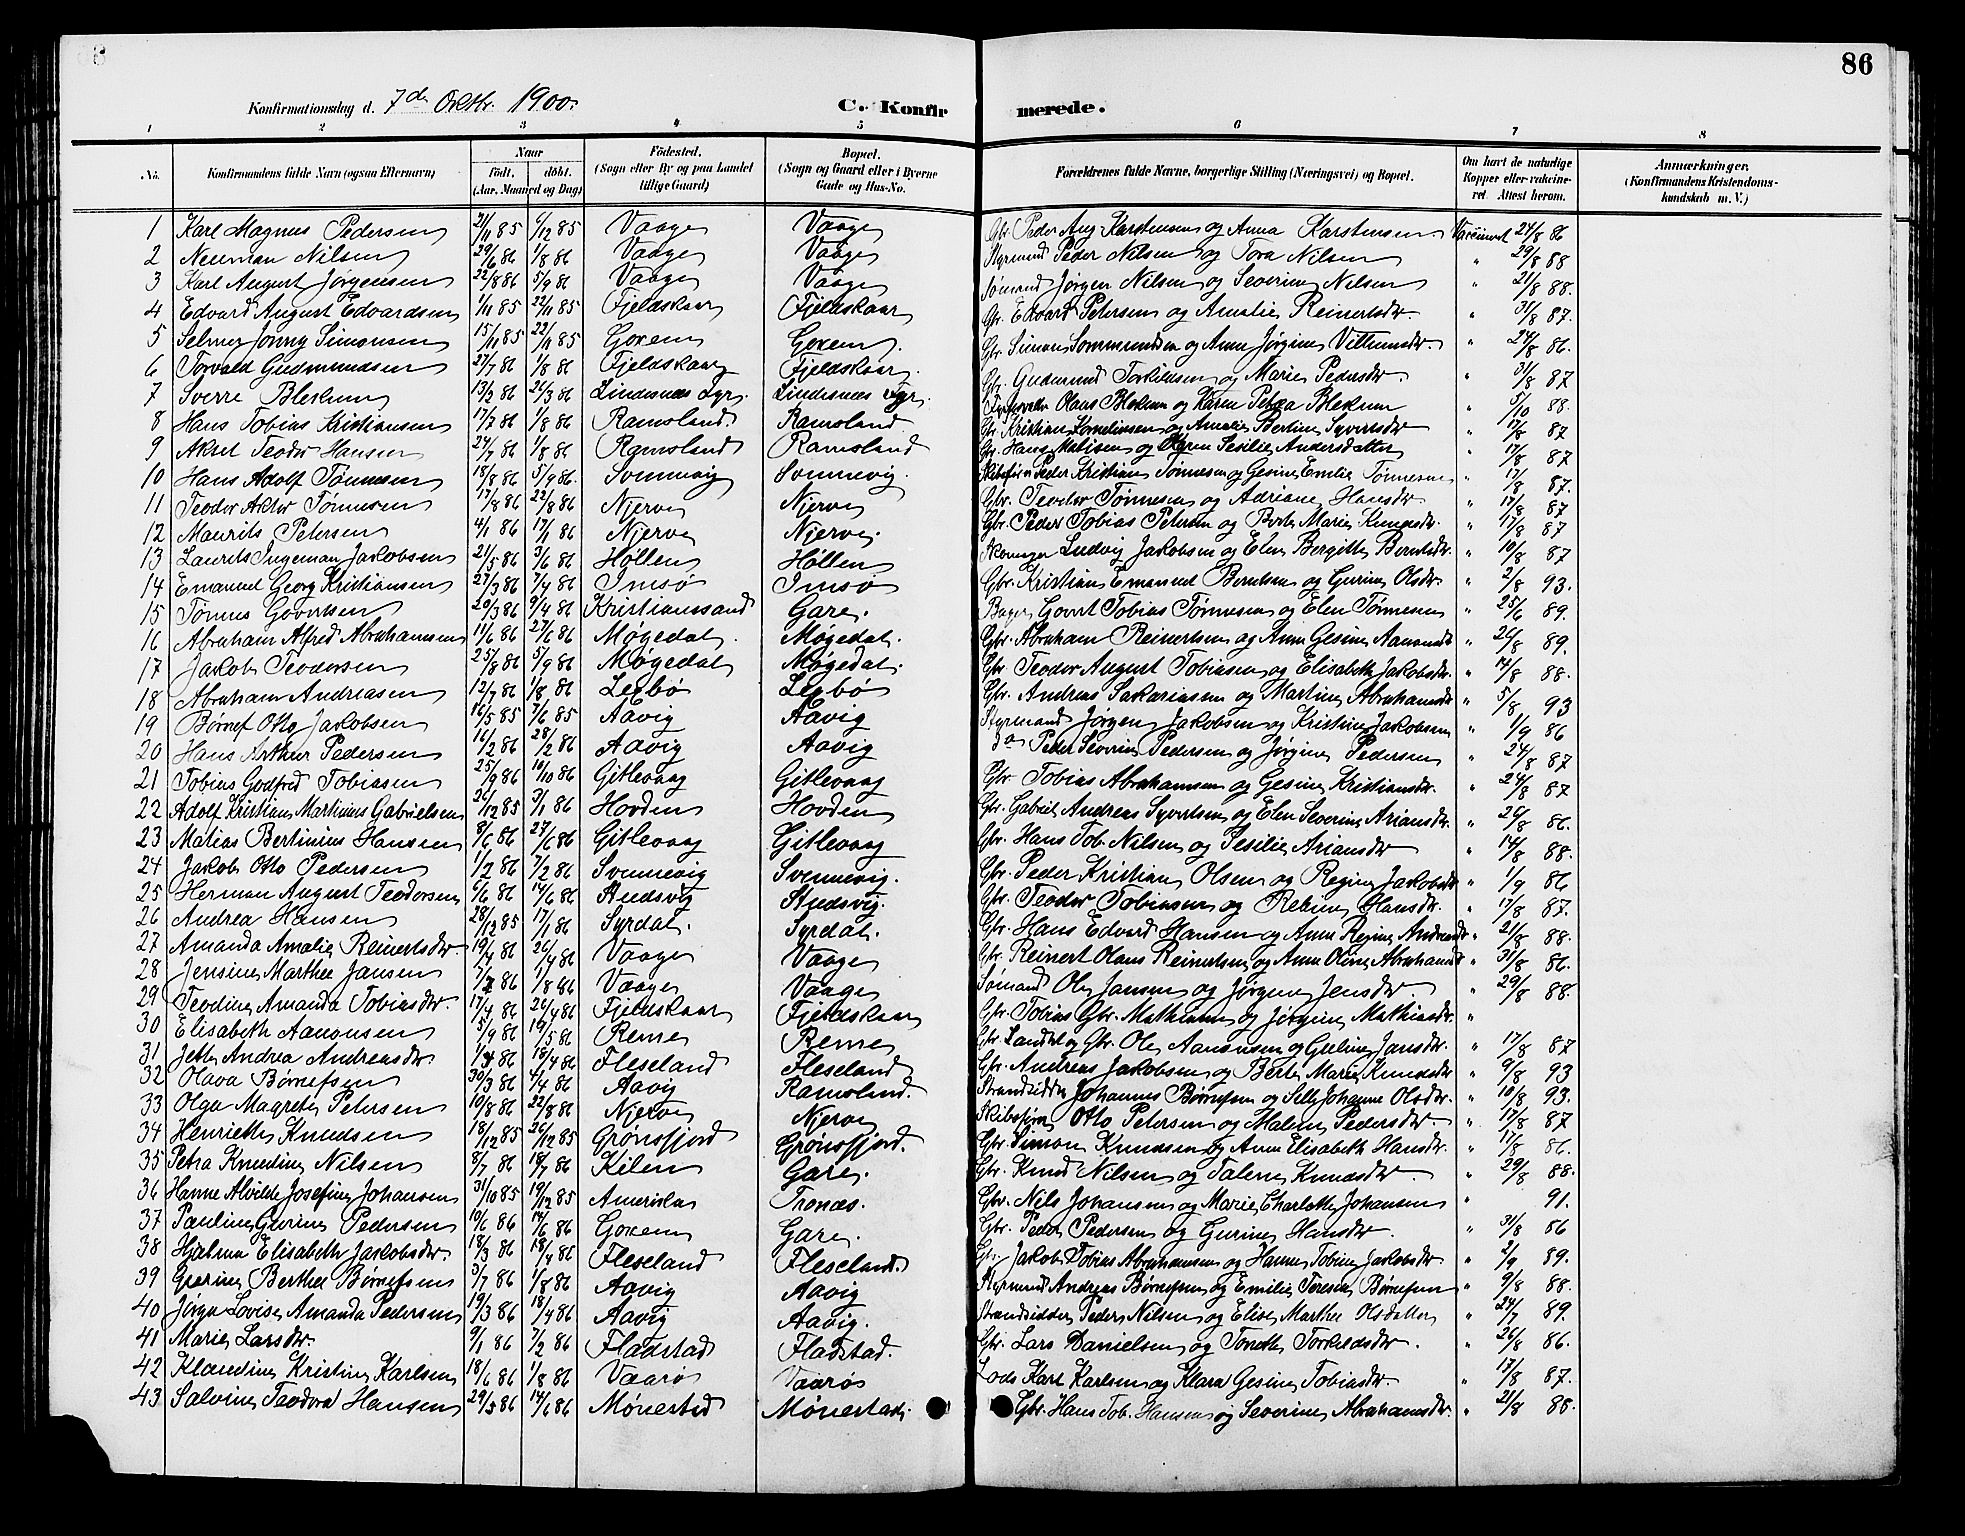 86
Konfirmationsdag d. 7de Oktbr. 1900. C. Konfirmerede.
1 2 3 4 5 6 7 8
No. Konfirmandens fulde Navn (ogsaa Efternavn) Naar Født. døbt. (Aar, Maaned og Dag) Fødested. (Sogn eller By og paa Landet tillige Gaard) Bopæl. (Sogn og Gaard eller i Byerne Gade og Hus-No. Forældrenes fulde Navne, borgerlige Stilling (Næringsvei) og Bopæl. Om havt de naturlige Kopper eller vaccineret Attest herom. Anmærkninger. (Konfirmandens Kristendomskundskab m. V.)
1 Karl Magnus Pedersen 21/11 85 6/12 85 Vaage Vaage Gbr. Peder Aug. Karstensen og Anna Karstensen Vaccineret 24/8 86
2 Neuman Nilsen 29/6 86 1/8 86 Vaage Vaage Styrmand Peder Nilsen og Tora Nilsen " 29/8 88
3 Karl August Jørgensen 22/8 86 5/9 86 Vaage Vaage Sømand Jørgen Nilsen og Severine Nilsen " 21/8 88.
4 Edvard August Edvardsen 1/11 85 22/11 85 Fjeldskaar Fjeldskaar Gbr. Edvard Petersen og Amalie Reinertsdr. " 31/8 87.
5 Selmer Jonny Simonsen 15/11 85 22/11 85 Goxem Goxem. Gbr. Simon Sommerundsen og Anne Jørgine " 24/8 86.
6 Torvald Gudmundsen 27/7 86 1/8 86 Fjeldskaar Fjeldskaar. Gbr. Gudmund Torkildsen og Marie Pedersdr. " 31/8 87
7 Sverre Blekum 13/2 86 26/3 86 Lindesnæs Fyr. Lindesnæs Fyr. Olaus Blekum og Karen Petrea Blekum " 5/10 88.
8 Hans Tobias Kristiansen 17/7 86 1/8 86 Ramsland. Ramsland Gbr. Kristian Kornelius­sen og Amalie Bertine Syvertsdr " 17/8 87
9 Aksel Teodor Hansen 24/7 86 1/8 86 Ramsland Ramsland Gbr. Hans Matisen og Karen Sesilie Andersdatter " 17/8 87
10 Hans Adolf Tønnesen 18/8 86 5/9 86. Svennevig Svennevig. Skibsfører Peder Kristian Tønnesen og Gesine Emilie Tønnesen " 17/8 87.
11 Teodor Aktor Tønnesen 17/8 86 22/8 86 Njerve Njerve Gbr. Teodor Tønnesen og Adriane Hansdr " 17/8 87
12 Maurits Petersen 4/1 86 17/1 86 Njerve Njerve. Gbr. Peder Tobias Petersen og Berte Marie Knudsdr. " 17/8 87
13 Laurits Ingeman Jakobsen 21/5 86 3/6 86 Høllen Høllen Skomager Ludvig Jakobsen og Elen Bergitte Berntsdr. " 10/8 87
14 Emanuel Georg Kristiansen 27/3 86 7/4 86 Imsø Imsø Gbr. Kristian Emanuel Berntsen og Gurine Olsdr. " 2/8 93.
15 Tønnes Govertsen 20/3 86 9/4 86 Kristianssand Gare. Bager Govert Tobias Tønnesen og Elen Tønnesen " 25/6 89.
16 Abraham Alfred Abrahamsen 11/6 86 27/6 86 Møgedal. Møgedal. Gbr. Abraham Reinertsen og Anne Gesine Aanensdr " 26/8 89.
17 Jakob Teodorsen 25/8 86 5/9 86 Møgedal Møgedal. Gbr. Teodor August Tobiasen og Elisabeth Jakobsdr. " 14/8 88.
18 Abraham Andreasen 12/7 86 1/8 86 Legbø Legbø Gbr. Andreas Sakariasen og Martine Abrahamsdr " 5/8 93
19 Børnef Otto Jakobsen 16/5 85 7/6 85 Aavig Aavig Styrmand Jørgen Jakobsen og Kristine Jakobsen " 1/9 86
20 Hans Arthur Pedersen 16/2 86 28/2 86 Aavig Aavig do Peder Severin Pedersen og Jørgine Pedersen " 24/8 87
21 Tobias Godfred Tobiasen 25/9 86 10/10 86 Gitlevaag Gitlevaag Gbr. Tobias Abrahamsen og Gesine Kristiansdr. " 24/8 87
22 Adolf Kristian Martinius Gabrielsen 26/12 85 3/1 86 Hovden Hovden Gbr. Gabriel Andreas Syvertsen og Elen Severine Ariansdr. " 26/8 86.
23 Matias Bertinius Hansen 8/6 86 27/6 86 Gitlevaag Gitlevaag Gbr. Hans Tob. Nilsen og Sesilie Ariansdr " 14/8 88.
24 Jakob Otto Pedersen 1/2 86 7/2 86 Svennevig Svennevig. Gbr. Peder Kristian Olsen og Regine Jakobsdr " 1/9 86
25 Herman August Teodorsen 5/6 86 14/6 86 Audsvig Audsvig. Gbr. Teodor Tobiassen og Rebine Hansdr. " 17/8 87.
26 Andrea Hansen 28/12 85 17/1 86 Syrdal. Syrdal. Gbr. Hans Edvard Hansen og Anne Regine Andreasdr " 21/8 88.
27 Amanda Amalie Reinertsdr. 19/4 86 26/4 86 Vaage Vaage Gbr. Reinert Olaus Reinertsen og Anne Oline Abrahamsdr " 31/8 86.
28 Jensine Marthee Jansen 7/7 86 1/8 86 Vaage Vaage Sømand Ole Jansen og Jørgine Jensdr. " 29/8 88.
29 Teodine Amanda Tobiasdr. 17/4 86 26/4 86 Fjeldskaar Fjeldskaar Gbr. Tobias Gbr. Mathiasen og Jørgine Mathiasdr. "
30 Elisabeth Aanonsen 5/9 86 19/5 86 Reme Reme Gbr. Landh. og Gbr. Ole Aanonsen og Guline Jansdr. " 17/8 87
31 Jette Andrea Andreasdr. 1/4 86 18/4 86 Fleseland Fleseland Gbr. Andreas Jakobsen og Berte Marie Knudsdr " 9/8 93
32 Olava Børnefsen 30/3 86 4/4 86 Aavig Ramsland. Strandsidder Johannes Børnefsen og Selly Johanne Olsdr. " 10/8 93.
33 Olga Magrete Petersen 10/8 86 22/8 86 Njerve Njerve Skibsfører Otto Petersen og Malene Pedersdr. " 17/8 87
34 Henriette Knudsen 18/12 85 26/12 85 Grønsfjord Grønsfjord. Gbr. Simon Knudsen og Anne Elisabeth Hansdr. " 17/8 86.
35 Petra Knudine Nilsen 8/7 86 18/7 86 Kilen Gare. Gbr. Knud Nilsen og Talene Knudsdr. " 29/8 88.
36 Hanne Alvilde Josefine Johansen 31/10 85 19/12 85 Amerika Tronæs. Gbr. Nils Johansen og Marie Charlotte Johansen " 91.
37 Pauline Gurine Pedersen 10/6 86 14/6 86 Goxem Gare. Gbr. Peder Pedersen og Gurine Hansdr. " 31/8 86
38 Hjalma Elisabeth Jakobsdr. 18/3 86 18/4 86 Fleseland Fleseland. Gbr. Jakob Tobias Abrahamsen og Hanne Tobine Jakobsdr " 2/9 89.
39 Gurine Berthee Børnefsen 3/7 86 1/8 86 Aavig Aavig Styrmand Andreas Børnefsen og Emilie Teresia Børnefsen " 9/8 88.
40 Jørga Lovise Amanda Pedersen 19/3 86 18/4 86 Aavig Aavig. Strandsidder Peder Nilsen og Elise Marthee Olsdatter " 24/7 89.
41 Marie Larsdr. 9/1 86 7/2 86 Fladstad Fladstad. Gbr. Lars Danielsen og Tonette Torkildsdr. " 26/8 86.
42 Klaudine Kristine Karlsen 18/6 86 1/8 86 Vaarø Vaarø Lods Karl Karlsen og Klara Gesine Tobiasdr. " 17/8 87.
43 Salvine Teodora Hansen 29/5 86 14/6 86 Mønestad Mønestad. Gbr. Hans Tob. Hansen og Severine Abrahamsdr. " 21/8 88.